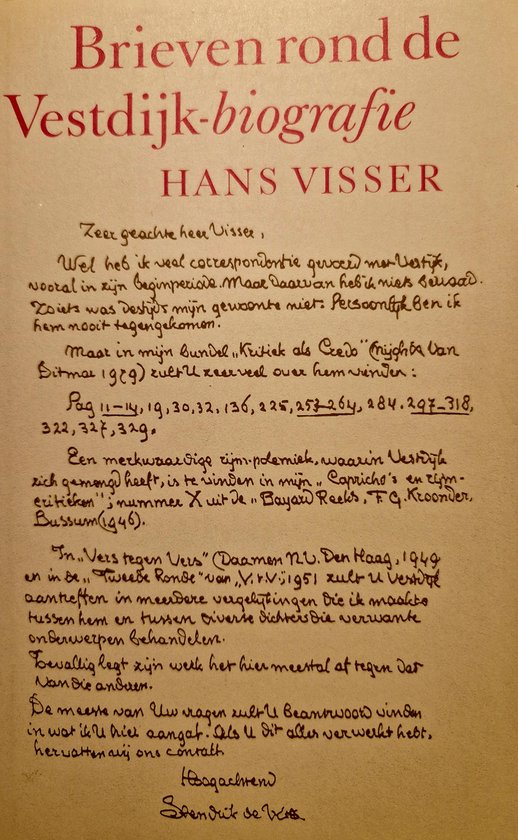 Brieven rond de
Vestdijk-biografie
HANS VISSER
Zeer geachte heer Visser,
Wel heb ik veel correspondentie gevoerd met Vestdijk,
vooral in zijn beginperiode. Maar daarvan heb ik niets bewaard.
Zoiets was destijds mijn gewoonte niet. Persoonlijk ben ik
hem nooit tegengekomen.
Maar in mijn bundel „Kritiek als Credo” (Nijgh & Van
Ditmar 1979) zult U zeer veel over hem vinden:
Pag 11-14, 19, 30, 32, 136, 225, 257-264, 284, 297-318,
322, 327, 329.
Een merkwaardige rijm-polemiek, waarin Vestdijk
zich gemengd heeft, is te vinden in mijn „Capricho's en rijm-
critieken”; nummer X uit de „Bayard Reeks, F.G. Kroonder,
Bussum (1946).
In „Vers tegen Vers” (Daamen N.V. Den Haag, 1949
en in de „Tweede Ronde” van „V.t.V.; 1951 zult U Vestdijk
aantreffen in meerdere vergelijkingen die ik maakte
tussen hem en tussen diverse dichters die verwante
onderwerpen behandelen.
Toevallig legt zijn werk het hier meestal af tegen dat
van die anderen.
De meeste van Uw vragen zult U beantwoord vinden
in wat ik U hier aangaf. Als U dit alles verwerkt hebt,
hervatten wij ons contact.
Hoogachtend
Hendrik de Vries